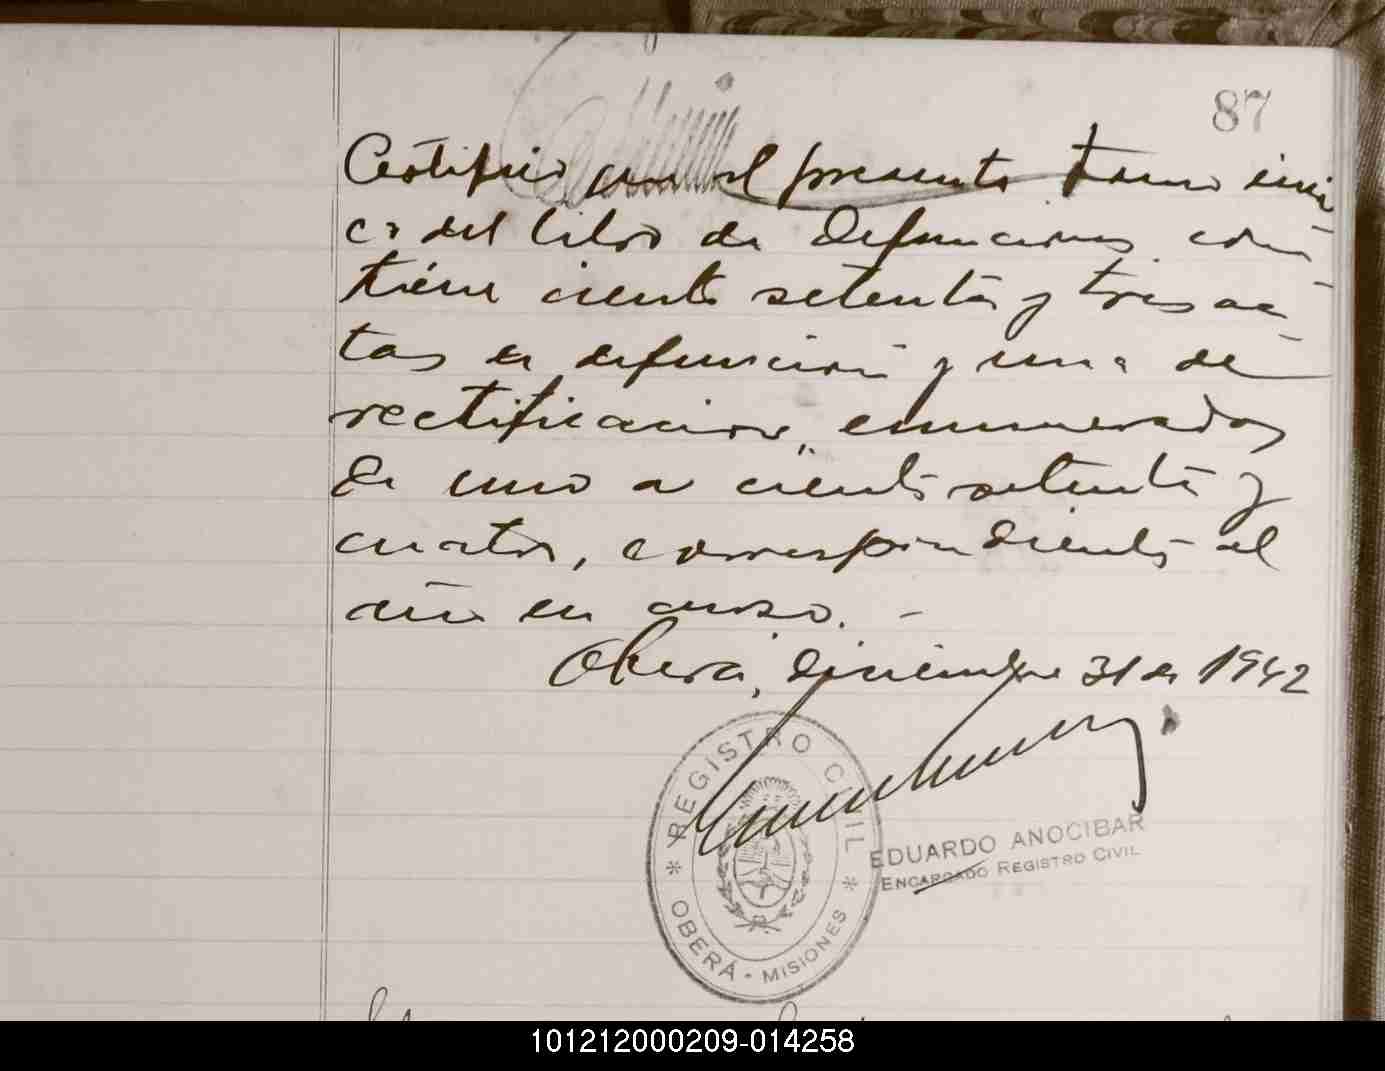 87
Certifico que el presente tomo úni
co del libro de defunciones con-
tiene ciento setenta y tres ac-
tas de defunción y una de
rectificación, enumeradas
de uno a ciento setenta y
cuatro, correspondiente al
año en curso. -
Oberá, diciembre 31 de 1942
REGISTRO CIVIL
* OBERÁ - MISIONES *
EDUARDO ANOCIBAR
ENCARGADO REGISTRO CIVIL
101212000209-014258